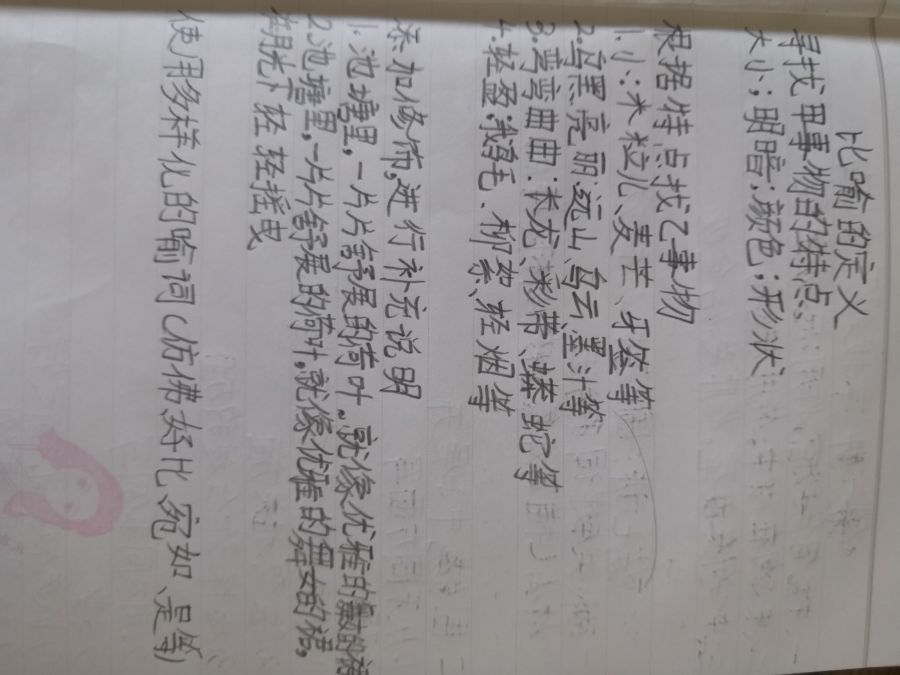 比喻的定义
寻找甲事物的特点,
大小;明暗;颜色;形状
根据特点找乙事物
1.小:米粒儿、麦芒、牙签等
2.乌黑亮丽:远山、乌云、墨汁等
3.弯弯曲曲:长龙、彩带、蟒蛇等
4.轻盈:鹅毛、柳絮、轻烟等
添加修饰,进行补充说明
1.池塘里,一片片舒展的荷叶,就像优雅的舞女的裙
2.池塘里,一片片舒展的荷叶,就像优雅的舞女的裙,
在月光下轻轻摇曳
使用多样化的喻词(仿佛、好比、宛如、是等)